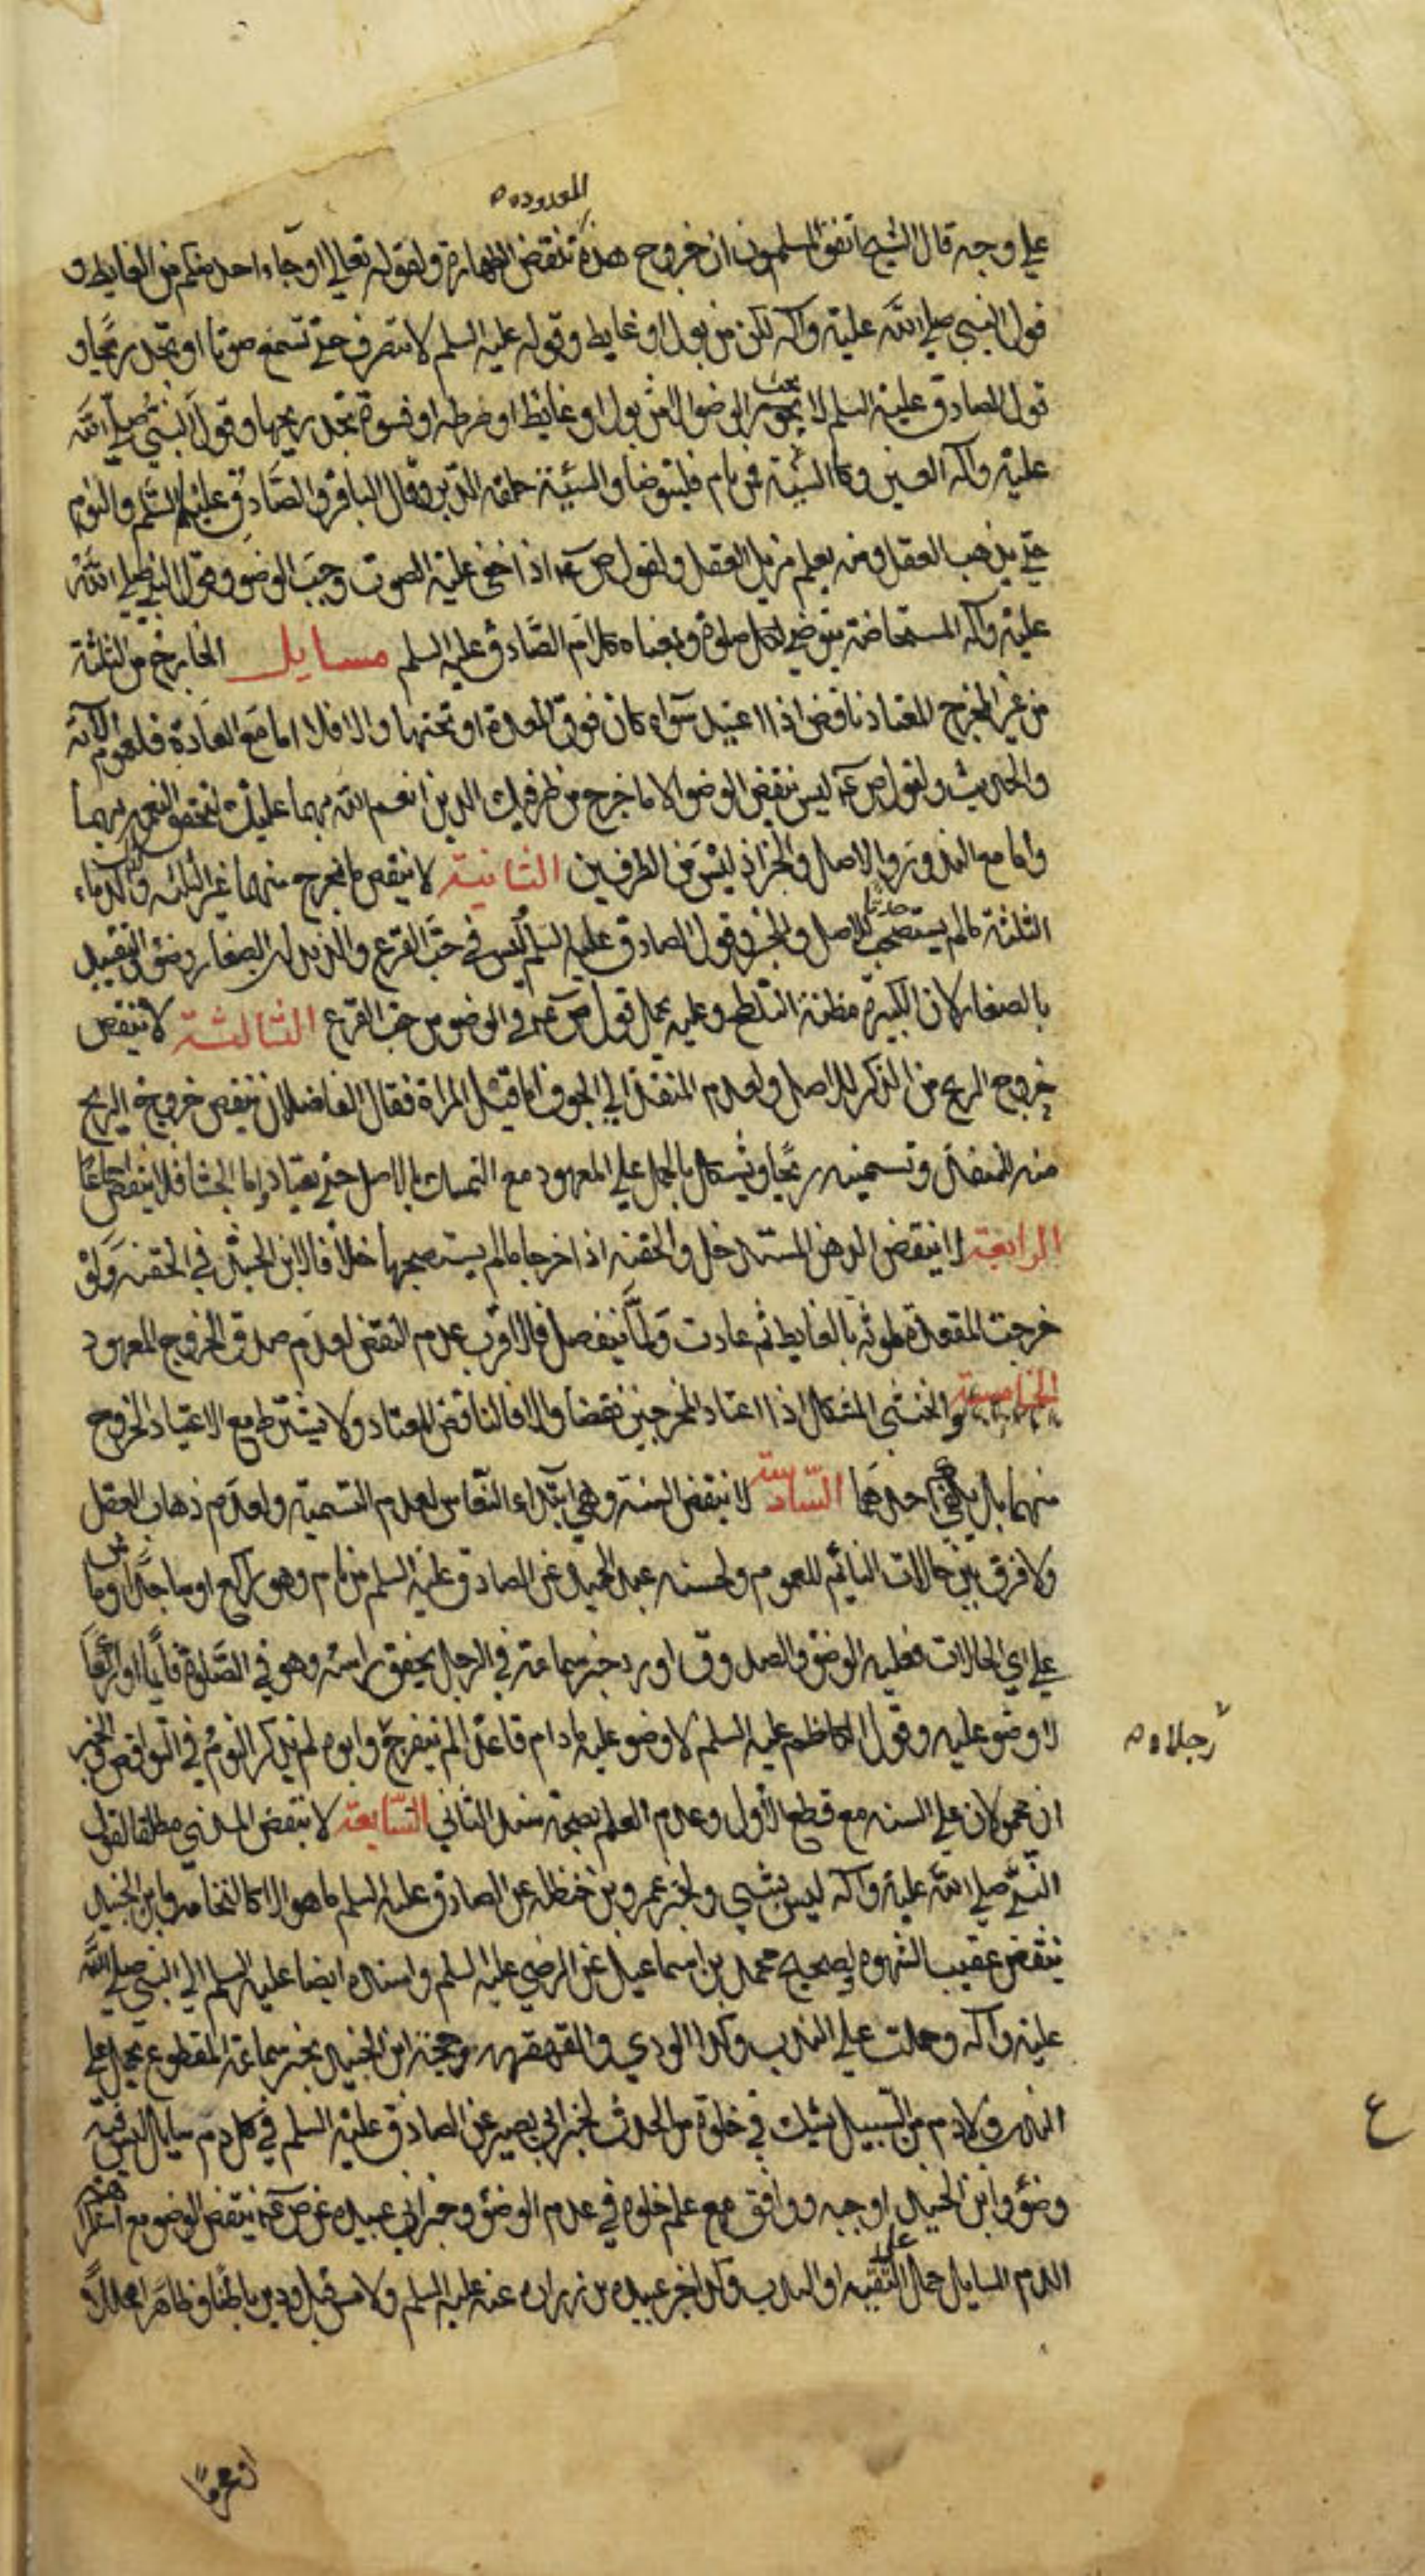 المعدوده
على وجه قال الشيخ اتفق المسلمون ان خروج هذه تنقض الطهارة ولقوله تعالى او جاء احد منكم من الغايط و
قول النبي صلى الله عليه وآله لكن من بول او غايط وقوله عليه السلم لا تنصرف حتى تسمع صوتا او تجد ريحا و
قول الصادق عليه السلم لا يجب الوضو الا من بول او غايط او ضرطه او فسوة تجد ريحها وقول النبي صلى الله
عليه وآله العينين وكا السته فمن نام فليتوضا والسته حلقه الدبر وقال الباقر والصادق عليهما السلم والنوم
حتى يذهب العقل ومنه يعلم مزيل العقل ولقول ص عه اذا خفى عليه الصوت وجب الوضو وقول النبي صلى الله
عليه وآله المستحاضة تتوضى لكل صلوة ومعناه كلام الصادق عليه السلم مسايل الخارج من الثلثة
من غير المخرج المعتاد ناقض اذا اعتيد سواء كان فوق المعدة او تحتها والا فلا اما مع العادة فلعموم الآية
والحديث ولقول ص عه ليس ينقض الوضو الا ما خرج من طرفيك الذين انعم الله بهما عليك لتحقق النعمة بهما
واما مع الندور والاصل والخبر اذ ليس من الطرفين الثانية لا ينقض ما يخرج منهما غير الثلثه والدماء
الثلثة ما لم يستصحب حدثا للاصل والخبر وقول الصادق عليه السلم ليس في حب القرع والديدان الصغار وضؤ والتقييد
بالصغار لان الكبيرة مظنة التلطخ وعليه يحمل قول ص عه في الوضو من حب القرع الثالثة لا ينقض
خروج الريح من الذكر للاصل ولعدم المنفذ الى الجوف اما قبل المراة فقال الفاضلان ينقض خروج الريح
منه للمنفذ وتسميته ريحا ويشكل بالحمل على المعهود مع التمسك بالاصل حتى يعتاد اما الجشا فلا ينقض اجماعا
الرابعة لا ينقض الدهن المستدخل والحقنه اذا خرجا ما لم يستصحبا خلافا لابن الجنيد في الحقنه ولو
خرجت المقعدة ملوثة بالغايط ثم عادت ولما ينفصل فالاقرب عدم النقض لعدم صدق الخروج المعهود
الخامسة والخنثى المشكل اذا اعتاد المخرجين نقضا والا فالناقض المعتاد ولا يشترط مع الاعتياد الخروج
منهما بل يكفي احدهما السادسة لا ينقض السنة وهي ابتداء النعاس لعدم التسمية ولعدم ذهاب العقل
ولا فرق بين حالات النائم للعموم ولحسنه عبد الحميد عن الصادق عليه السلم من نام وهو راكع او ساجد او ماش
على اي الحالات فعليه الوضؤ والصدوق اورد خبر سماعة في الرجل يخفق راسه وهو في الصلوة قايما او راكعا
لا وضو عليه وقول الكاظم عليه السلم لا وضو عليه ما دام قاعدا لم ينفرج وابوه لم يذكر النوم في النواقض والخبر
رجلاه
ان محمولان على السنه مع قطع الاول وعدم العلم بصحة سند الثاني السابعة لا ينقض المذي مطلقا لقول
النبي صلى الله عليه وآله ليس بشيء ولخبر عمر بن حنظله عن الصادق عليه السلم ما هو الا كالنخامه وابن الجنيد
ينقض عقيب الشهوه لصحيح محمد بن اسماعيل عن الرضي عليه السلم واسنده ايضا عليه السلم الى النبي صلى الله
عليه وآله وحملت على الندب وكذا الودي والقهقهه وحجة ابن الجنيد بخبر سماعة المقطوع يحمل على
الندب ولا دم من السبيل يشك في خلوه من الحدث لخبر ابي بصير عن الصادق عليه السلم في كل دم سايل ليس فيه
ع
وضؤ وابن الجنيد اوجبه ووافق مع علم خلوه في عدم الوضؤ وخبر ابي عبيده عن ص عه ينقض الوضو مع استكراه
الدم السايل حمل على التقيه او الندب وكذا خبر عبيد بن زراره عنه عليه السلم ولا مس قبل ودبر باطنا وظاهرا محللا
او محرما